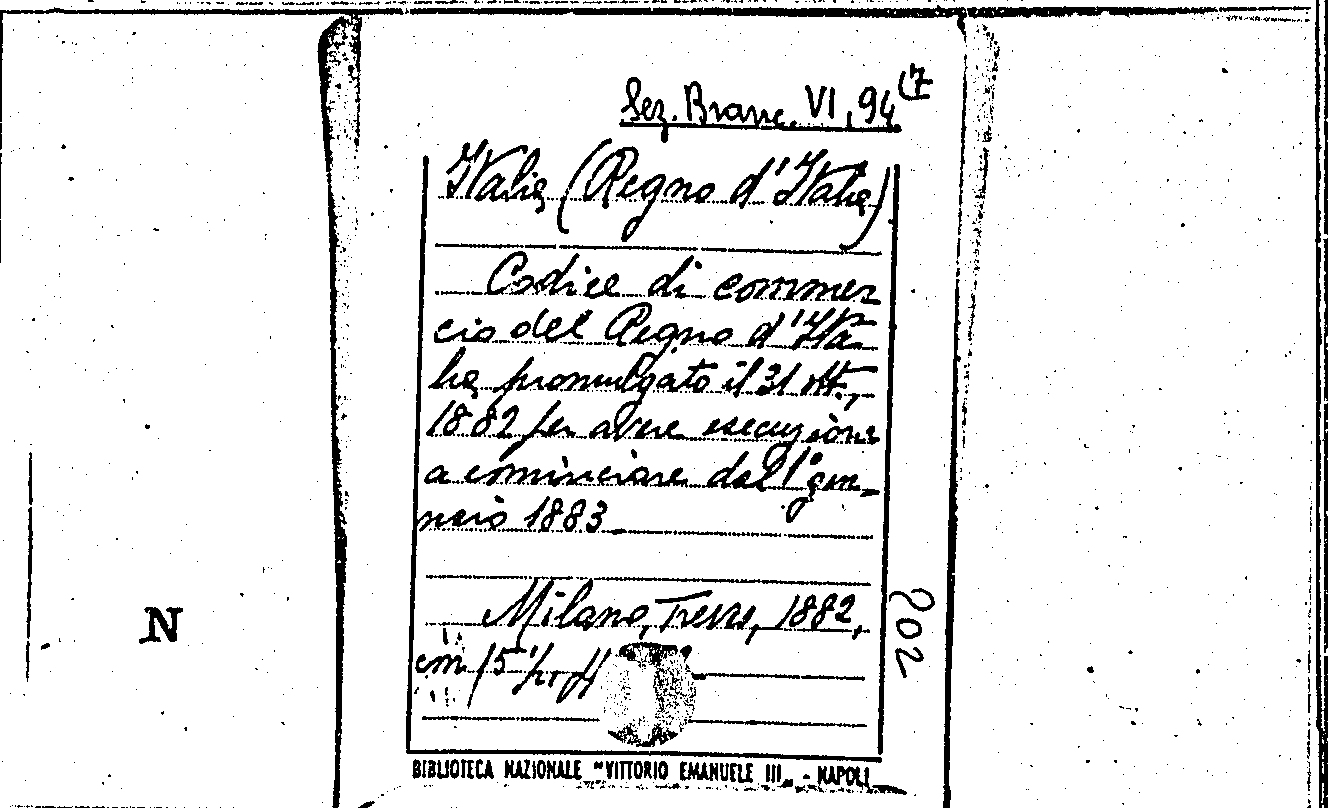 Sez. Branc. VI, 94 (7
Italia (Regno d'Italia)
Codice di commer
cio del Regno d'Ita-
lia promulgato il 31 ott.,
1882 per avere esecuzione
a cominciare dal 1° gen-
naio 1883
Milano, Treves, 1882,
cm 15
202
N
BIBLIOTECA NAZIONALE "VITTORIO EMANUELE III„ - NAPOLI